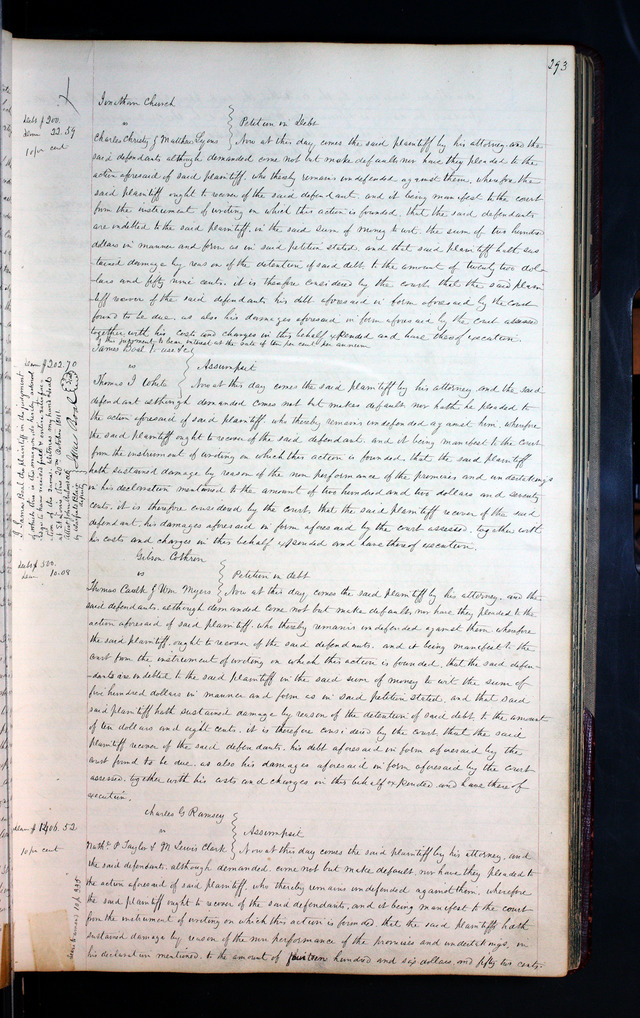 293
Jonathan Church
vs
Petition in Debt
Debt $ 200.
Dam 22.59
10 per cent
Charles Christy & Matthew Lyons
Now at this day, comes the said plaintiff by his attorney. and the
said defendants although demanded come not but make defaults nor have they pleaded to the
action aforesaid of said plaintiff. who thereby remains undefended against them. wherefore the
said plaintiff ought to recover of the said defendant. and it being manifest to the court
from the instrument of writing on which this action is founded, that the said defendants
are indebted to the said plaintiff. in the said sum of money to wit. the sum of two hundred
dollars in manner and form as in said petition stated. and that said plaintiff hath sus
tained damage by reason of the detention of said debt. to the amount of twenty two dol-
lars and fifty nine cents. it is therefore considered by the court that the said plain
tiff recover of the said defendants his debt aforesaid in form aforesaid by the court
found to be due. as also his damages aforesaid in form aforesaid by the court assessed
together with his costs and charges in this behalf expended and have thereof execution.
the judgment to bear interest at the rate of ten per cent per annum
James Boal
vs
Assumpsit
Dam $ 202.70
Thomas J White
Now at this day comes the said plaintiff by his attorney and the said
defendant although demanded comes not but makes default. nor hath he pleaded to
the action aforesaid of said plaintiff, who thereby remains undefended against him. wherefore
the said plaintiff ought to recover of the said defendant. and it being manifest to the Court
from the instrument of writing on which this action is founded, that the said plaintiff
hath sustained damage by reason of the non performance of the promises and undertakings
in his declaration mentioned to the amount of two hundred and two dollars and seventy
cents. it is therefore considered by the court, that the said plaintiff recover of the said
defendant. his damages aforesaid in form aforesaid by the court assessed, together with
his costs and charges in this behalf expended and have thereof execution.
I James Boal the plaintiff in the judgment
James Boal
Gibson Cothron
vs
Petition in debt
Debt $ 500.
Dam 10.08
Thomas Caulk & Wm Myers
Now at this day, comes the said plaintiff by his attorney, and the
said defendants. although demanded come not but make defaults, nor have they pleaded to the
action aforesaid of said plaintiff. who thereby remains undefended against them. wherefore
the said plaintiff. ought to recover of the said defendants. and it being manifest to the
court from the instrument of writing on which this action is founded, that the said defen-
dants are indebted to the said plaintiff in the said sum of money to wit the sum of
five hundred dollars in manner and form as in said petition stated. and that said
said plaintiff hath sustained damage by reason of the detention of said debt, to the amount
of ten dollars and eight cents. it is therefore considered by the court. that the said
plaintiff recover of the said defendants. his debt aforesaid in form aforesaid by the
court found to be due. as also his damages aforesaid in form aforesaid by the court
assessed. together with his costs and charges in this behalf expended. and have thereof
execution.
Charles G Ramsey
vs
Assumpsit
Dam $ 1406.52
10 per cent
Nathl. P Taylor & M Lewis Clark
Now at this day comes the said plaintiff by his attorney, and
the said defendants. although demanded. come not but make default. nor have they pleaded to
the action aforesaid of said plaintiff, who thereby remains undefended against them, wherefore
the said plaintiff ought to recover of the said defendants, and it being manifest to the court
from the instrument of writing on which this action is founded that the said plaintiff hath
sustained damage by reason of the non performance of the promises and undertakings. in
his declaration mentioned. to the amount of fourteen hundred and six dollars, and fifty two cents.